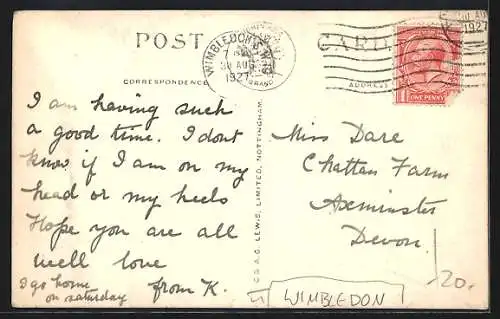 POST CARD
WIMBLEDON S.W.19
30 AUG
1927
1927
CORRESPONDENCE
ADDRESS
ONE PENNY
I am having such
a good time. I dont
know if I am on my
head or my heels
Hope you are all
well love
from K.
I go home
on saturday
Miss Dare
Chattan Farm
Axminster
Devon.
LEWIS, LIMITED, NOTTINGHAM.
WIMBLEDON
20.